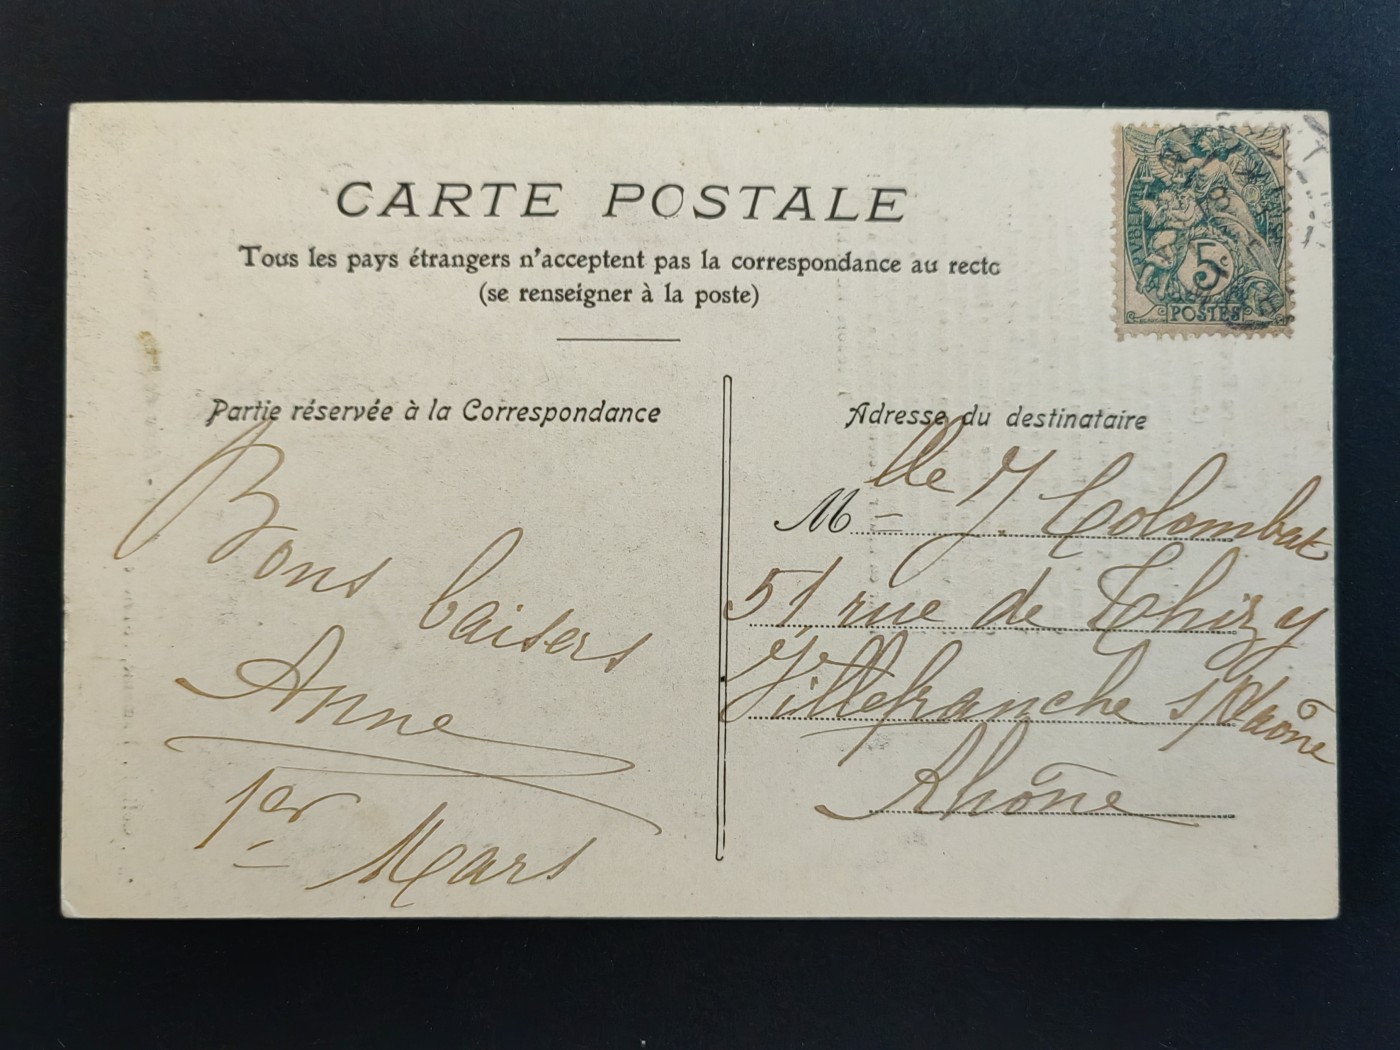 CARTE POSTALE
Tous les pays étrangers n'acceptent pas la correspondance au recto
(se renseigner à la poste)
5
POSTES
Partie réservée à la Correspondance
Adresse du destinataire
Bons baisers
Anne
1er Mars
Mlle J. Colombat
51 rue de Thizy
Villefranche s/Rhône
Rhône